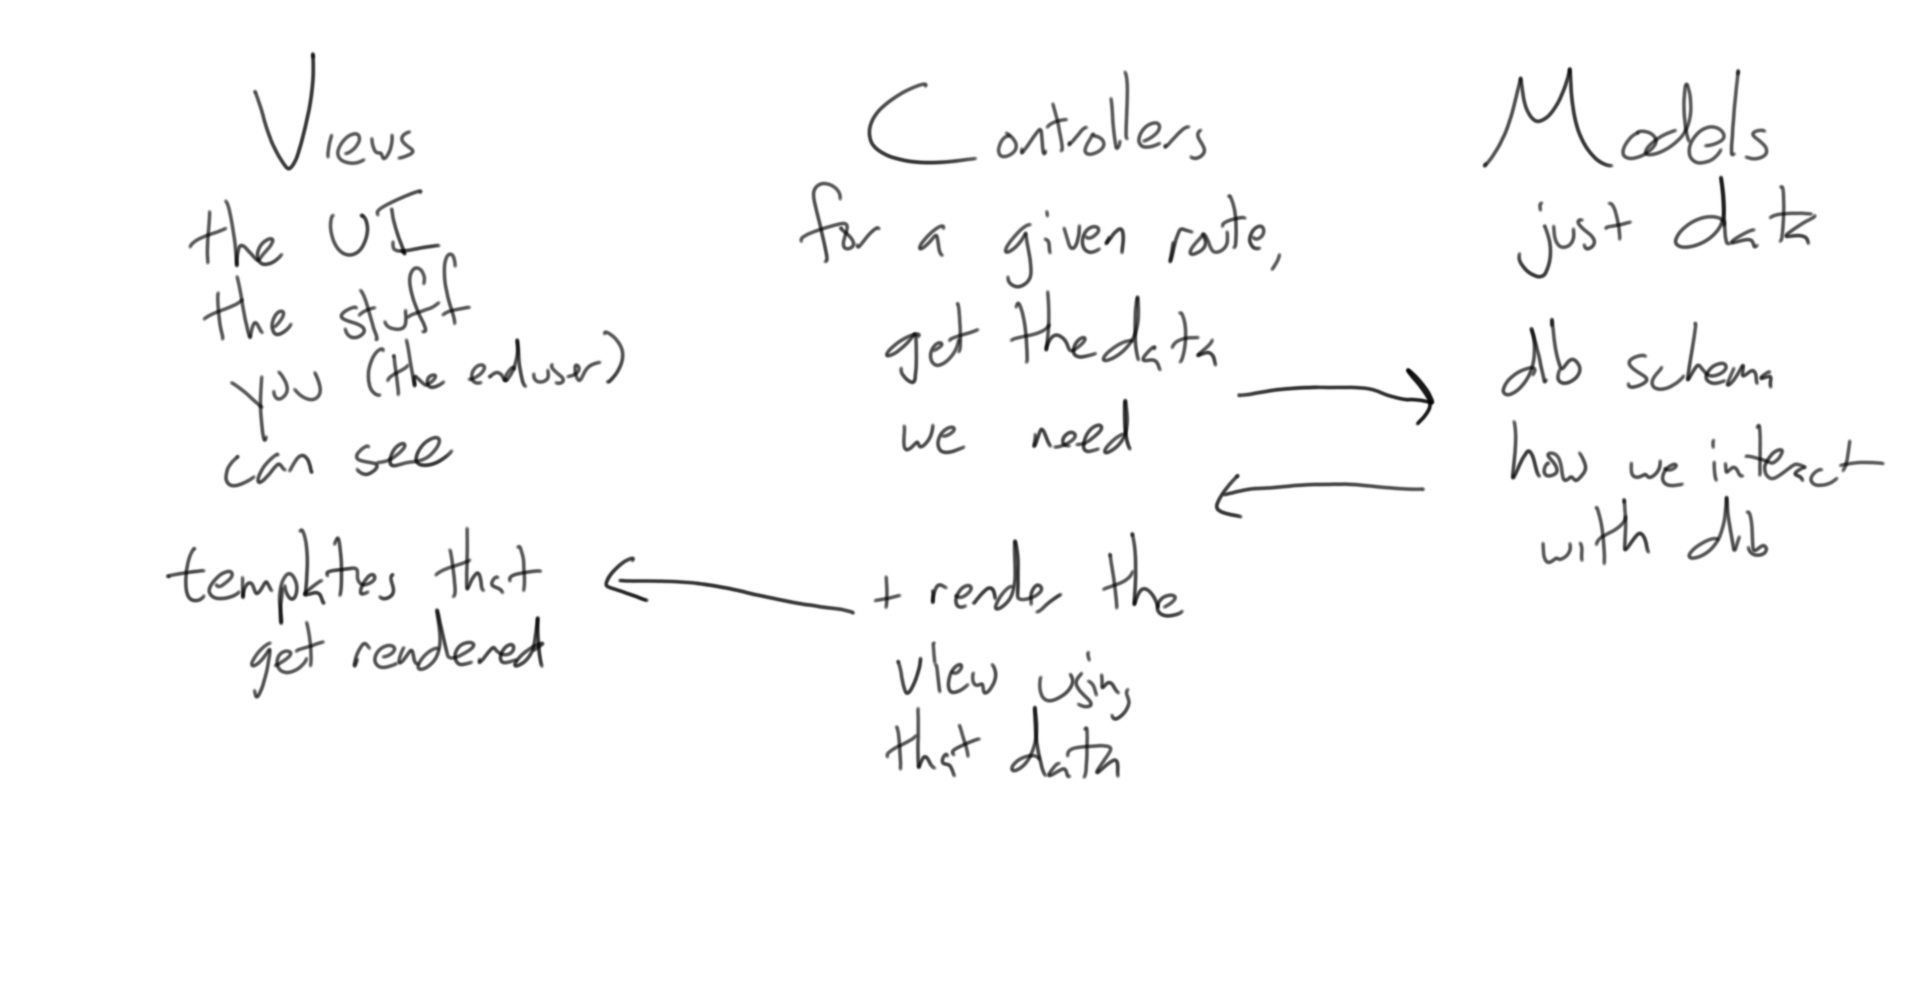 Views
the UI
the stuff
you (the enduser)
can see
templates that
get rendered
Controllers
for a given route,
get the data
we need
+ render the
view using
that data
Models
just data
db schema
how we interact
with db